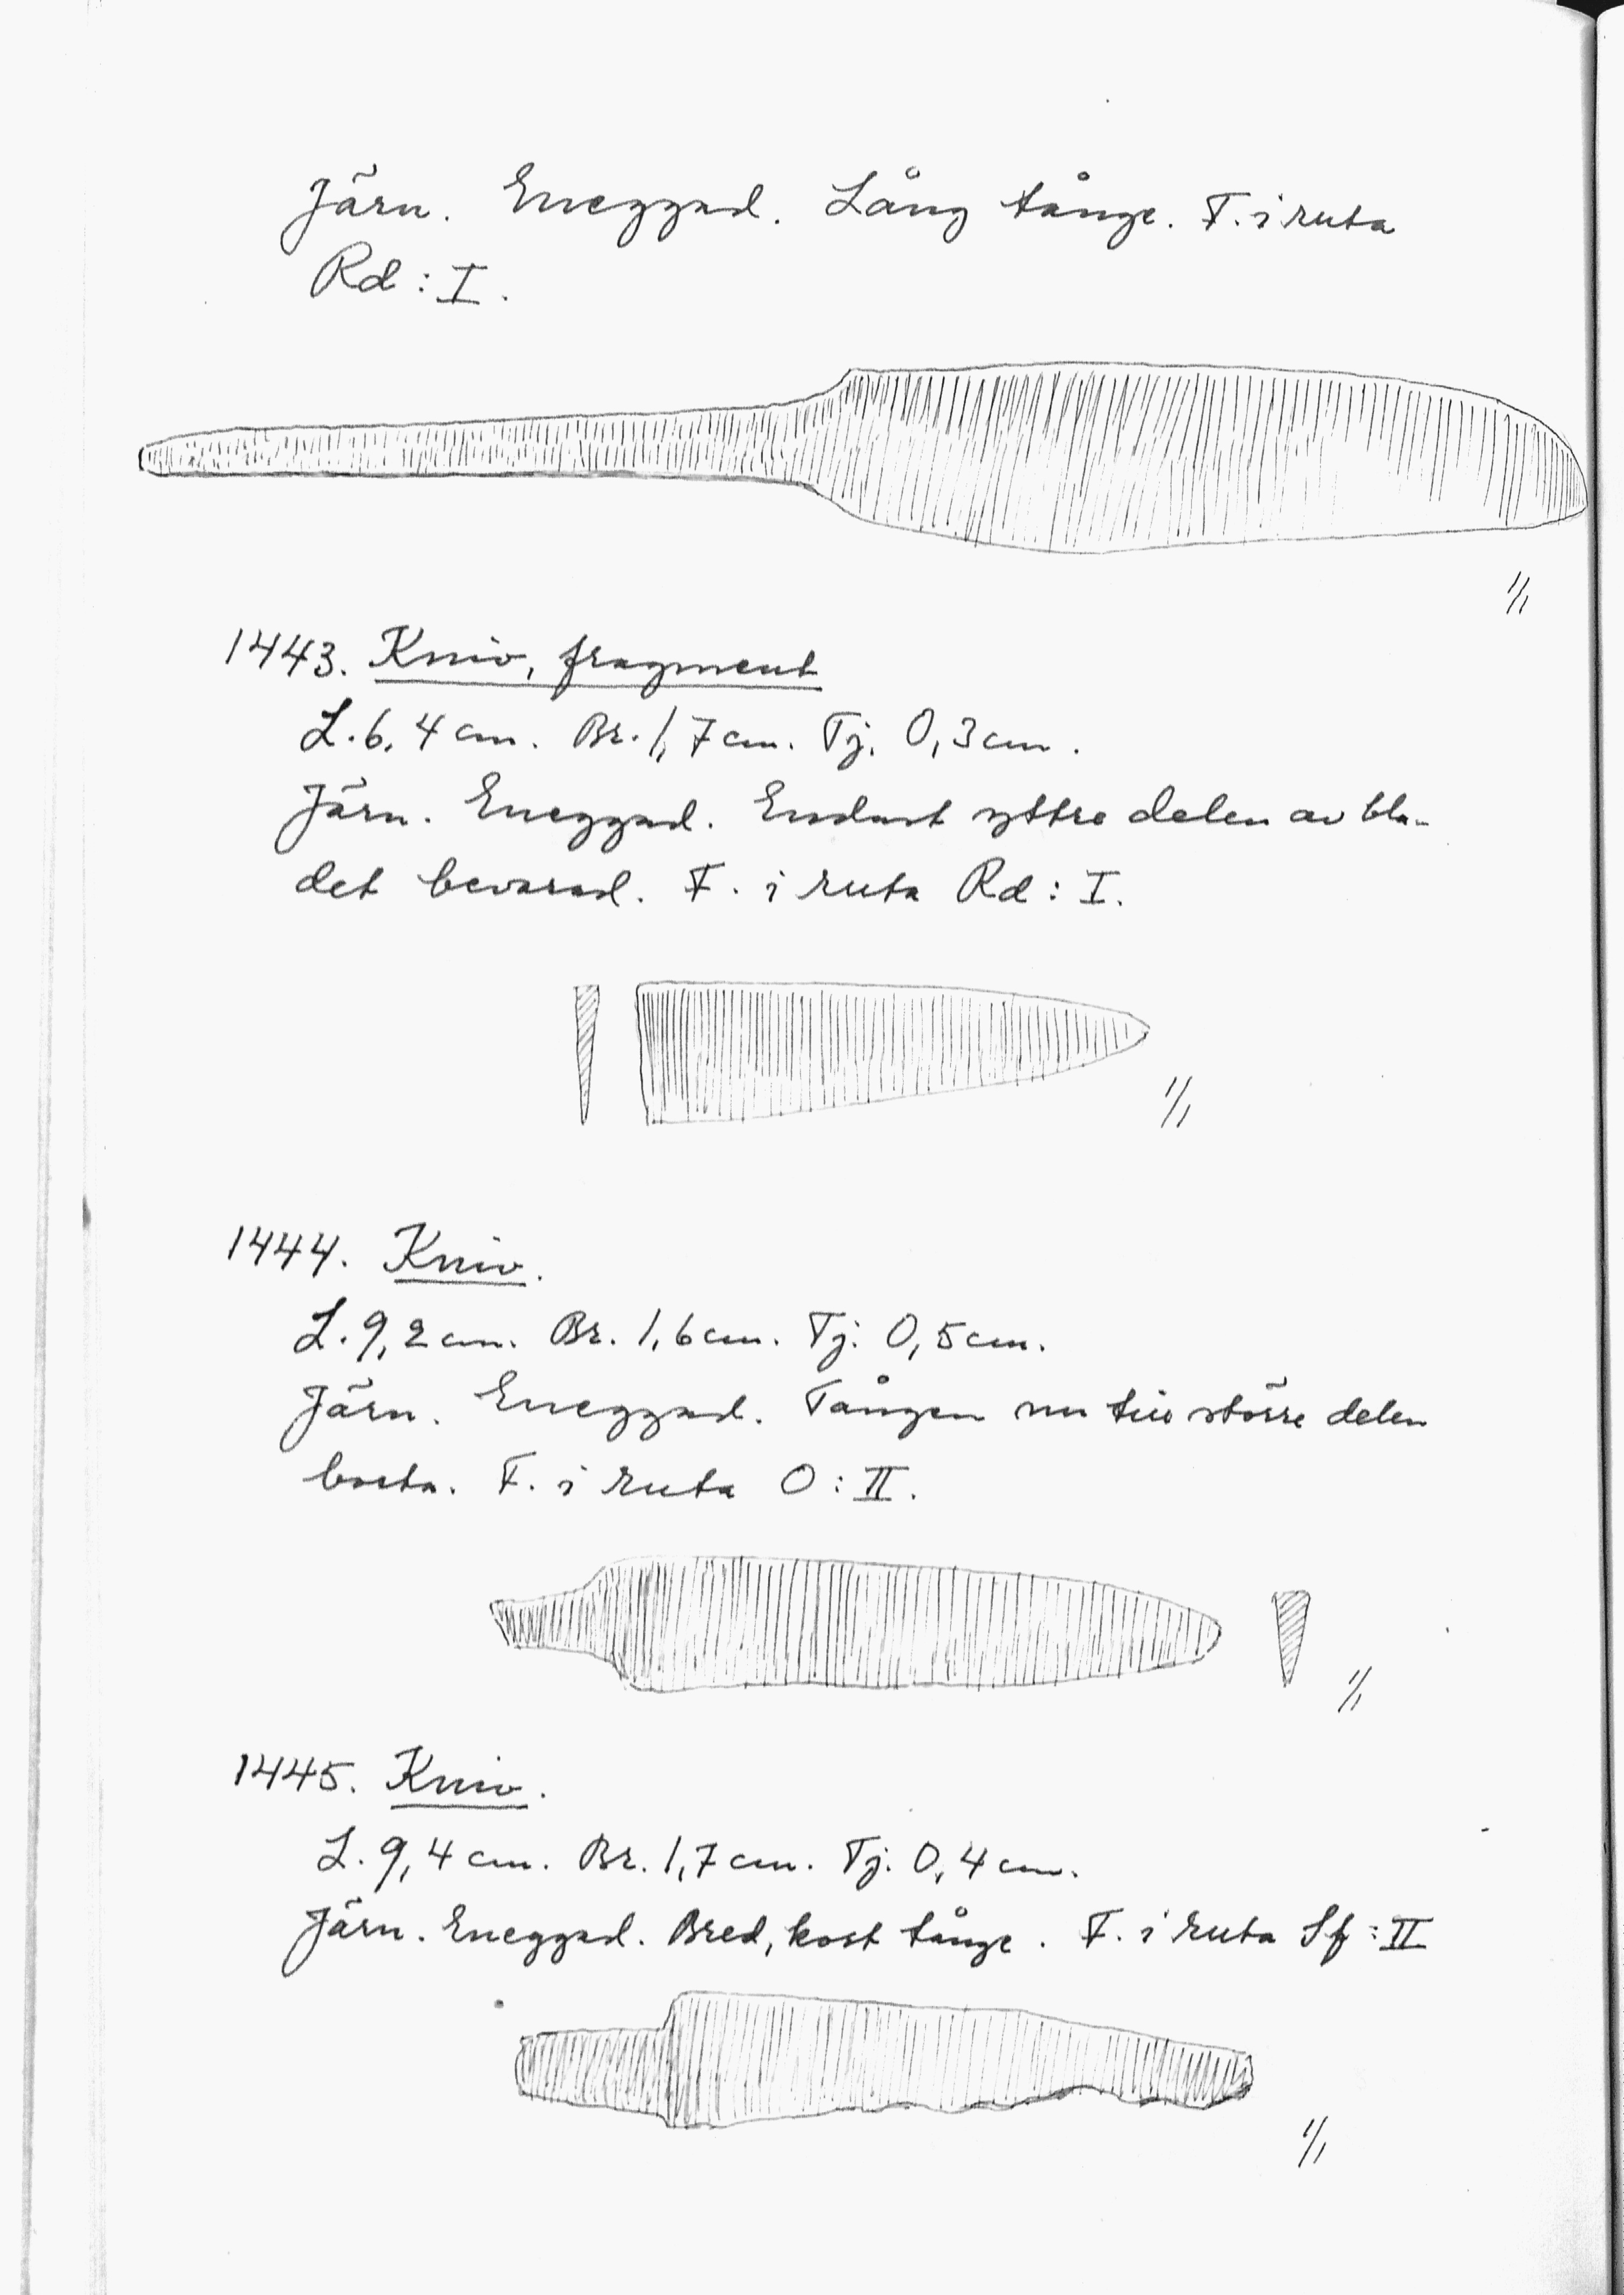 Järn. Eneggad. Lång tånge. F. i ruta
Rd : I.
1/1
1443. Kniv, fragment
L. 6,4 cm. Br. 1,7 cm. Tj. 0,3 cm.
Järn. Eneggad. Endast yttre delen av bla-
det bevarad. F. i ruta Rd : I.
1/1
1444. Kniv.
L. 9,2 cm. Br. 1,6 cm. Tj. 0,5 cm.
Järn. Eneggad. Tången nu till större delen
borta. F. i ruta O : II.
1/1
1445. Kniv.
L. 9,4 cm. Br. 1,7 cm. Tj. 0,4 cm.
Järn. Eneggad. Bred, kort tånge. F. i ruta Sf : II
1/1